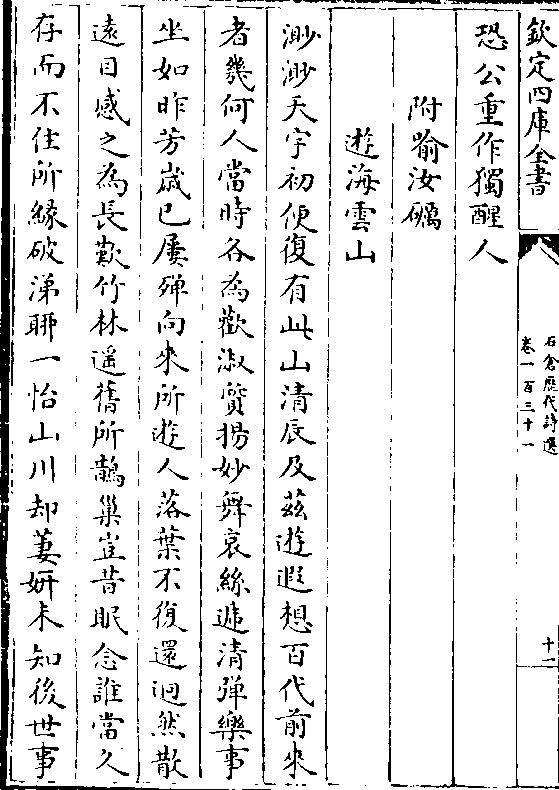 欽定四庫全書
石倉歷代詩選
卷一百三十一
十二
恐公重作獨醒人
附喻汝礪
遊海雲山
渺渺天宇初便復有此山清辰及茲遊遐想百代前來
者幾何人當時各為歡淑質揚妙舞哀絲遞清彈樂事
坐如昨芳歳已屢殫向來所遊人落葉不復還迥然散
遠目感之為長歎竹林遥舊所鵲巢豈昔眠念誰當久
存而不住所縁破涕聊一怡山川却萋妍未知後世事